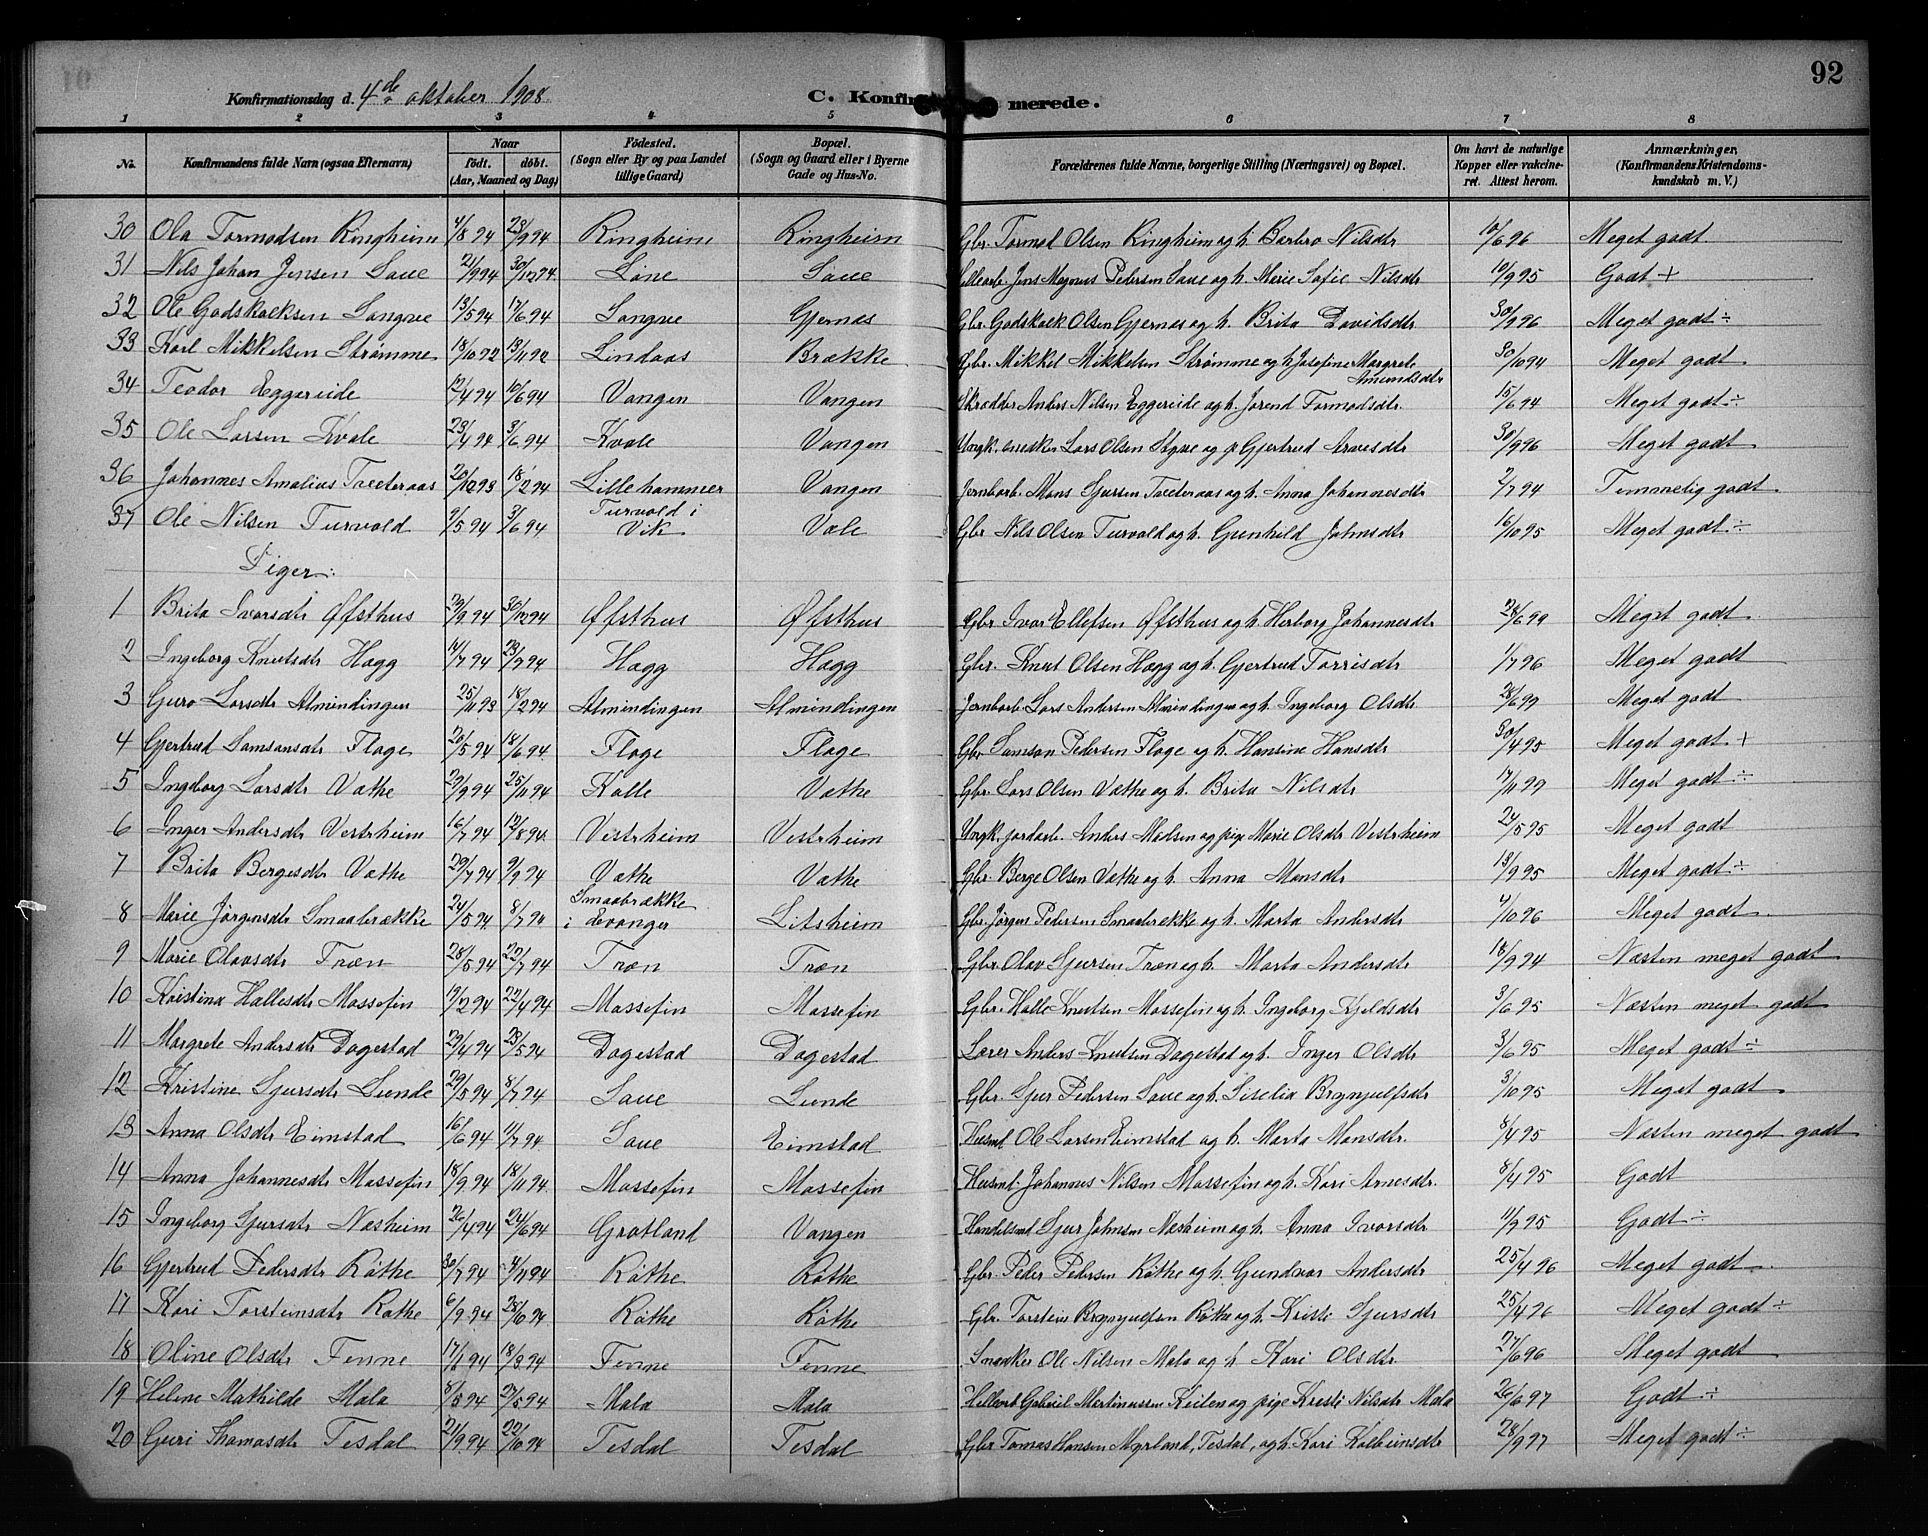 92
Konfirmationsdag d. 4de oktober 1908.
C. Konfirmerede.
1 2 3 4 5 6 7 8
No. Konfirmandens fulde Navn (ogsaa Efternavn) Naar født. døbt. (Aar, Maaned og Dag) Fødested. (Sogn eller By og paa Landet tillige Gaard) Bopæl. (Sogn og Gaard eller i Byerne Gade og Hus-No. Forældrenes fulde Navne, borgerlige Stilling (Næringsvei) og Bopæl. Om havt de naturlige Kopper eller vakcineret. Attest herom. Anmærkninger, (Konfirmandens Kristendomskundskab m. V.)
30 Ola Tormodsen Ringheim 4/8 94 23/9 94 Ringheim Ringheim Gbr. Tormod Olsen Ringheim og h. Barbro Nilsdtr 10/6 96 Meget godt
31 Nils Johan Jensen Saue 21/9 94 30/12 94 Løne Saue Jens Magnus Pedersen Saue og h. Marie Sofie Nilsdtr 10/9 95 Godt +
32 Ole Godskalksen Songve 13/5 94 17/6 94 Songve Gjernes Gbr. Godskalk Olsen Gjernes og h. Brita Davidsdtr 30/9 96 Meget godt ÷
33 Karl Mikkelsen Strømme 18/10 92 13/11 92 Lindaas Brække Gbr. Mikkel Mikkelsen Strømme og h. Josefine Margrete Amundsdtr 30/10 94 Meget godt
34 Teodor Eggereide 12/4 94 10/6 94 Vangen Vangen Skrædder Anders Nilsen Eggereide og h. Jorend Tormodsdtr. 15/6 94 Meget godt ÷
35 Ole Larsen Kvale 23/4 94 3/6 94 Kvale Vangen Ungk. snedker Lars Olsen Styve og p Gjertrud Arnesdtr 30/9 96 Meget godt
36 Johannes Amalius Tveteraas 20/12 93 18/2 94 Lillehammer Vangen Jernbarb. Mons Sjursen Tveteraas og h. Anna Johannesdtr 2/7 94 Temmelig godt
37 Ole Nilsen Turvold 9/5 94 3/6 94 Turvold i Vik Vale Gbr Nils Olsen Turvold og h. Gunhild Johnsdtr 16/10 95 Meget godt ÷
Piger:
1 Brita Ivarsdtr Øfsthus 20/9 94 30/12 94 Øfsthus Øfsthus Gbr Ivar Ellefsen Øfsthus og h. Herborg Johannesdtr 28/6 99 Meget godt
2 Ingeborg Knutsdtr Hogg 14/7 94 23/9 94 Hogg Hogg Gbr. Knut Olsen Hogg og h. Gjertrud Torrisdtr 1/7 96 Meget godt
3 Guro Larsdtr Almindingen 25/11 93 18/2 94 Almindingen Almindingen Jernbarb. Lars Andersen Almindingen og h. Ingeborg Olsdtr 28/6 99 Meget godt
4 Gjertrud Samsonsdtr Flage 20/5 94 18/6 94 Flage Flage Gbr Samson Pedersen Flage og h. Hansine Hansdtr 30/4 95 Meget godt +
5 Ingeborg Larsdtr Væthe 29/9 94 25/11 94 Kolle Væthe Gbr. Lars Olsen Væthe og h. Brita Nilsdtr 17/11 99 Meget godt ÷
6 Inger Andersdtr Vestrheim 16/7 94 12/8 94 Vestrheim Vestrheim Ungk. jordarb. Anders Madsen og pige Marie Olsdtr Vestrheim 24/5 95 Meget godt
7 Brita Bergesdtr Væthe 29/7 94 9/9 94 Væthe Væthe Gbr. Berge Olsen Væthe og h. Anna Monsdtr 13/9 95 Meget godt ÷
8 Marie Jørgensdtr Smaabrække 24/5 94 8/7 94 Smaabrække i Evanger Litsheim Gbr. Jørgen Pedersen Smaabrække og h. Marta Andersdtr 4/10 96 Meget godt
9 Marie Olavsdtr Træn 28/5 94 22/7 94 Træn Træn Gbr. Olav Sjursen Træn og h. Marta Andersdtr 18/9 94 Næsten meget godt
10 Kristina Hallesdtr Mossefin 19/2 94 22/4 94 Mossefin Mossefin Gbr. Halle Knutsen Mossefin og h. Ingeborg Kjeldsdtr 3/6 95 Næsten meget godt
11 Margrete Andersdtr Dagestad 29/4 94 23/5 94 Dagestad Dagestad Lærer Anders Knutsen Dagestad og h. Inger Olsdtr 3/6 95 Meget godt ÷
12 Kristine Sjursdtr Lunde 29/5 94 8/7 94 Saue Lunde Gbr. Sjur Pedersen Saue og h. Siselia Brynjulfsdtr 3/10 95 Meget godt
13 Anna Olsdtr Eimstad 16/6 94 11/7 94 Saue Eimstad Husmd Ole Larsen Eimstad og h. Marta Monsdtr. 8/4 95 Næsten meget godt
14 Anna Johannesdtr Mossefin 18/9 94 18/11 94 Mossefin Mossefin Husmd. Johannes Nilsen Mossefin og h. Kari Arnesdtr. 8/4 95 Godt
15 Ingeborg Sjursdtr Næsheim 26/4 94 24/6 94 Grotland Vangen Handelsmd Sjur Johnsen Næsheim og h. Anna Ivarsdtr 11/9 95 Godt ÷
16 Gjertrud Pedersdtr Røthe 30/7 94 4/11 94 Røthe Røthe Gbr. Peder Pedersen Røthe og h. Gundvor Andersdtr 25/4 96 Meget godt
17 Kari Torsteinsdtr Røthe 6/9 94 28/10 94 Røthe Røthe Gbr. Torstein Brynjulfsen Røthe og h. Kristi Sjursdtr 25/4 96 Meget godt ÷
18 Oline Olsdtr Finne 17/1 94 18/3 94 Finne Finne Ole Nilsen Mala og h. Kari Olsdtr 27/6 96 Meget godt
19 Helene Mathilde Mala 8/5 94 27/5 94 Mala Mala Hellearb Gabriel Martinussen Keilen og pige Kristi Nilsdtr Mala 26/6 97 Godt ÷
20 Guri Thomasdtr Tesdal 21/9 94 22/10 94 Tesdal Tesdal Gbr Tomas Hansen Myrland, Tesdal, og h. Kari Kolbeinsdtr 28/9 97 Meget godt ÷